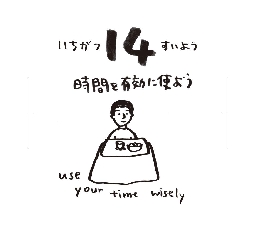 いちがつ 14 すいよう
時間を有効に使おう
use
your time wisely